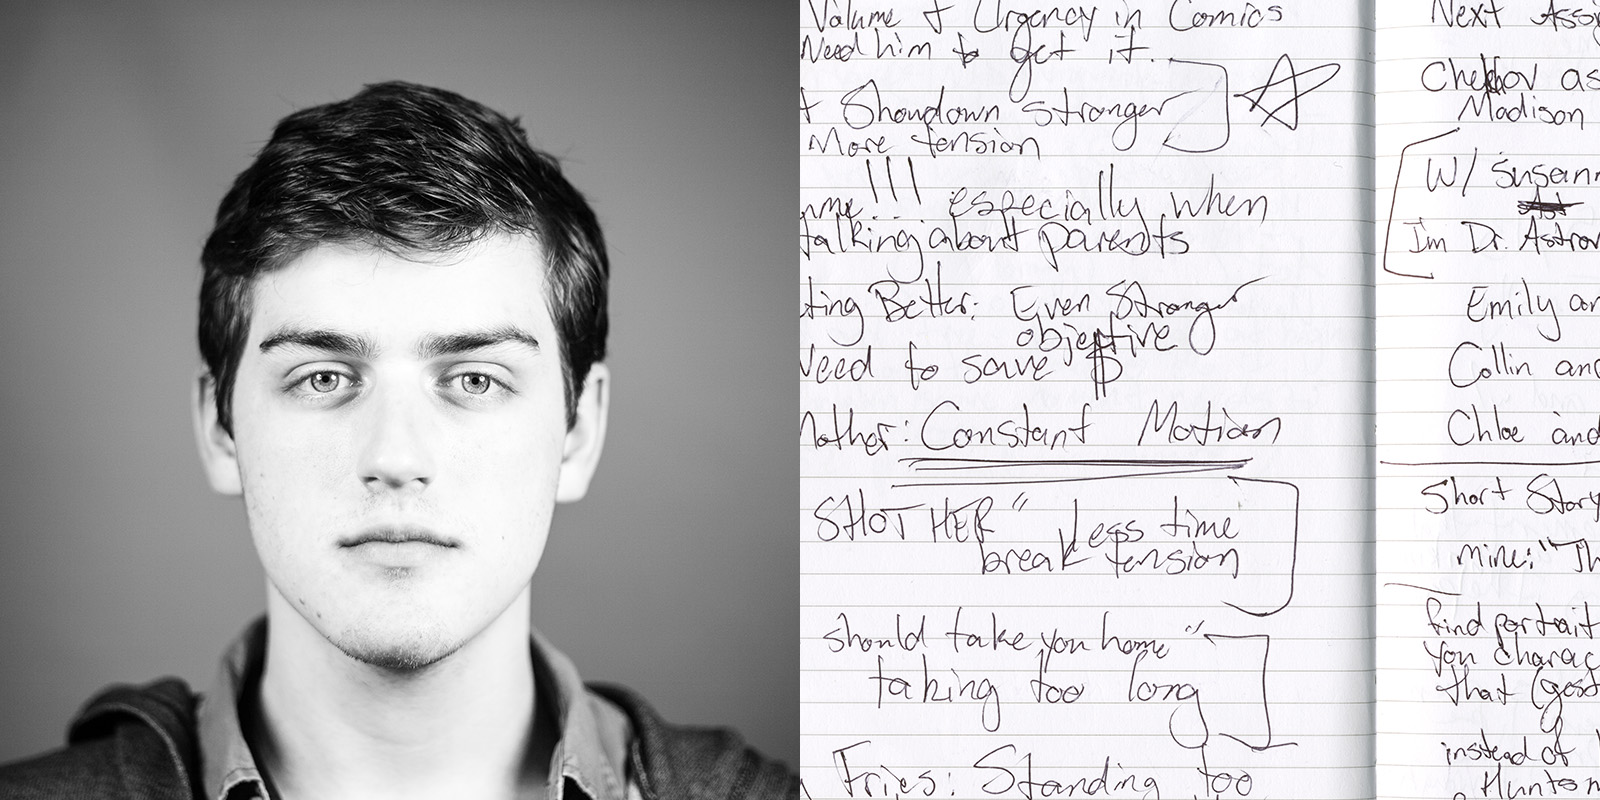 Volume & Urgency in Comics
Need him to get it.
Showdown stronger
More tension
!!! especially when
talking about parents
ting Better: Even Stronger
objective
Need to save $
Mother: Constant Motion
SHOT HER" Less time
break tension
should take you home"
taking too long
Fries: Standing too
Next Assi
Chekhov as
Madison
W/ Susann
I'm Dr. Astrov
Emily an
Collin and
Chloe and
Short Story
mine: "Th
find portrait
you charac
that (gest
instead of